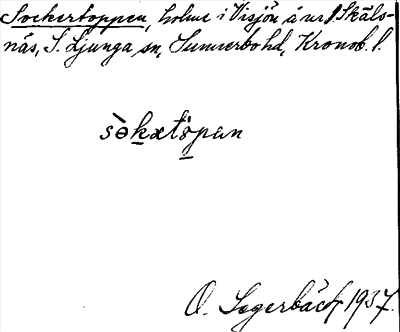 Sockertoppen, holme i Visjön å nr 1 Skäls-
näs, S. Ljunga sn, Sunnerbo hd, Kronob. l.
sòkxtöpan
O. Segerbäck 1937.